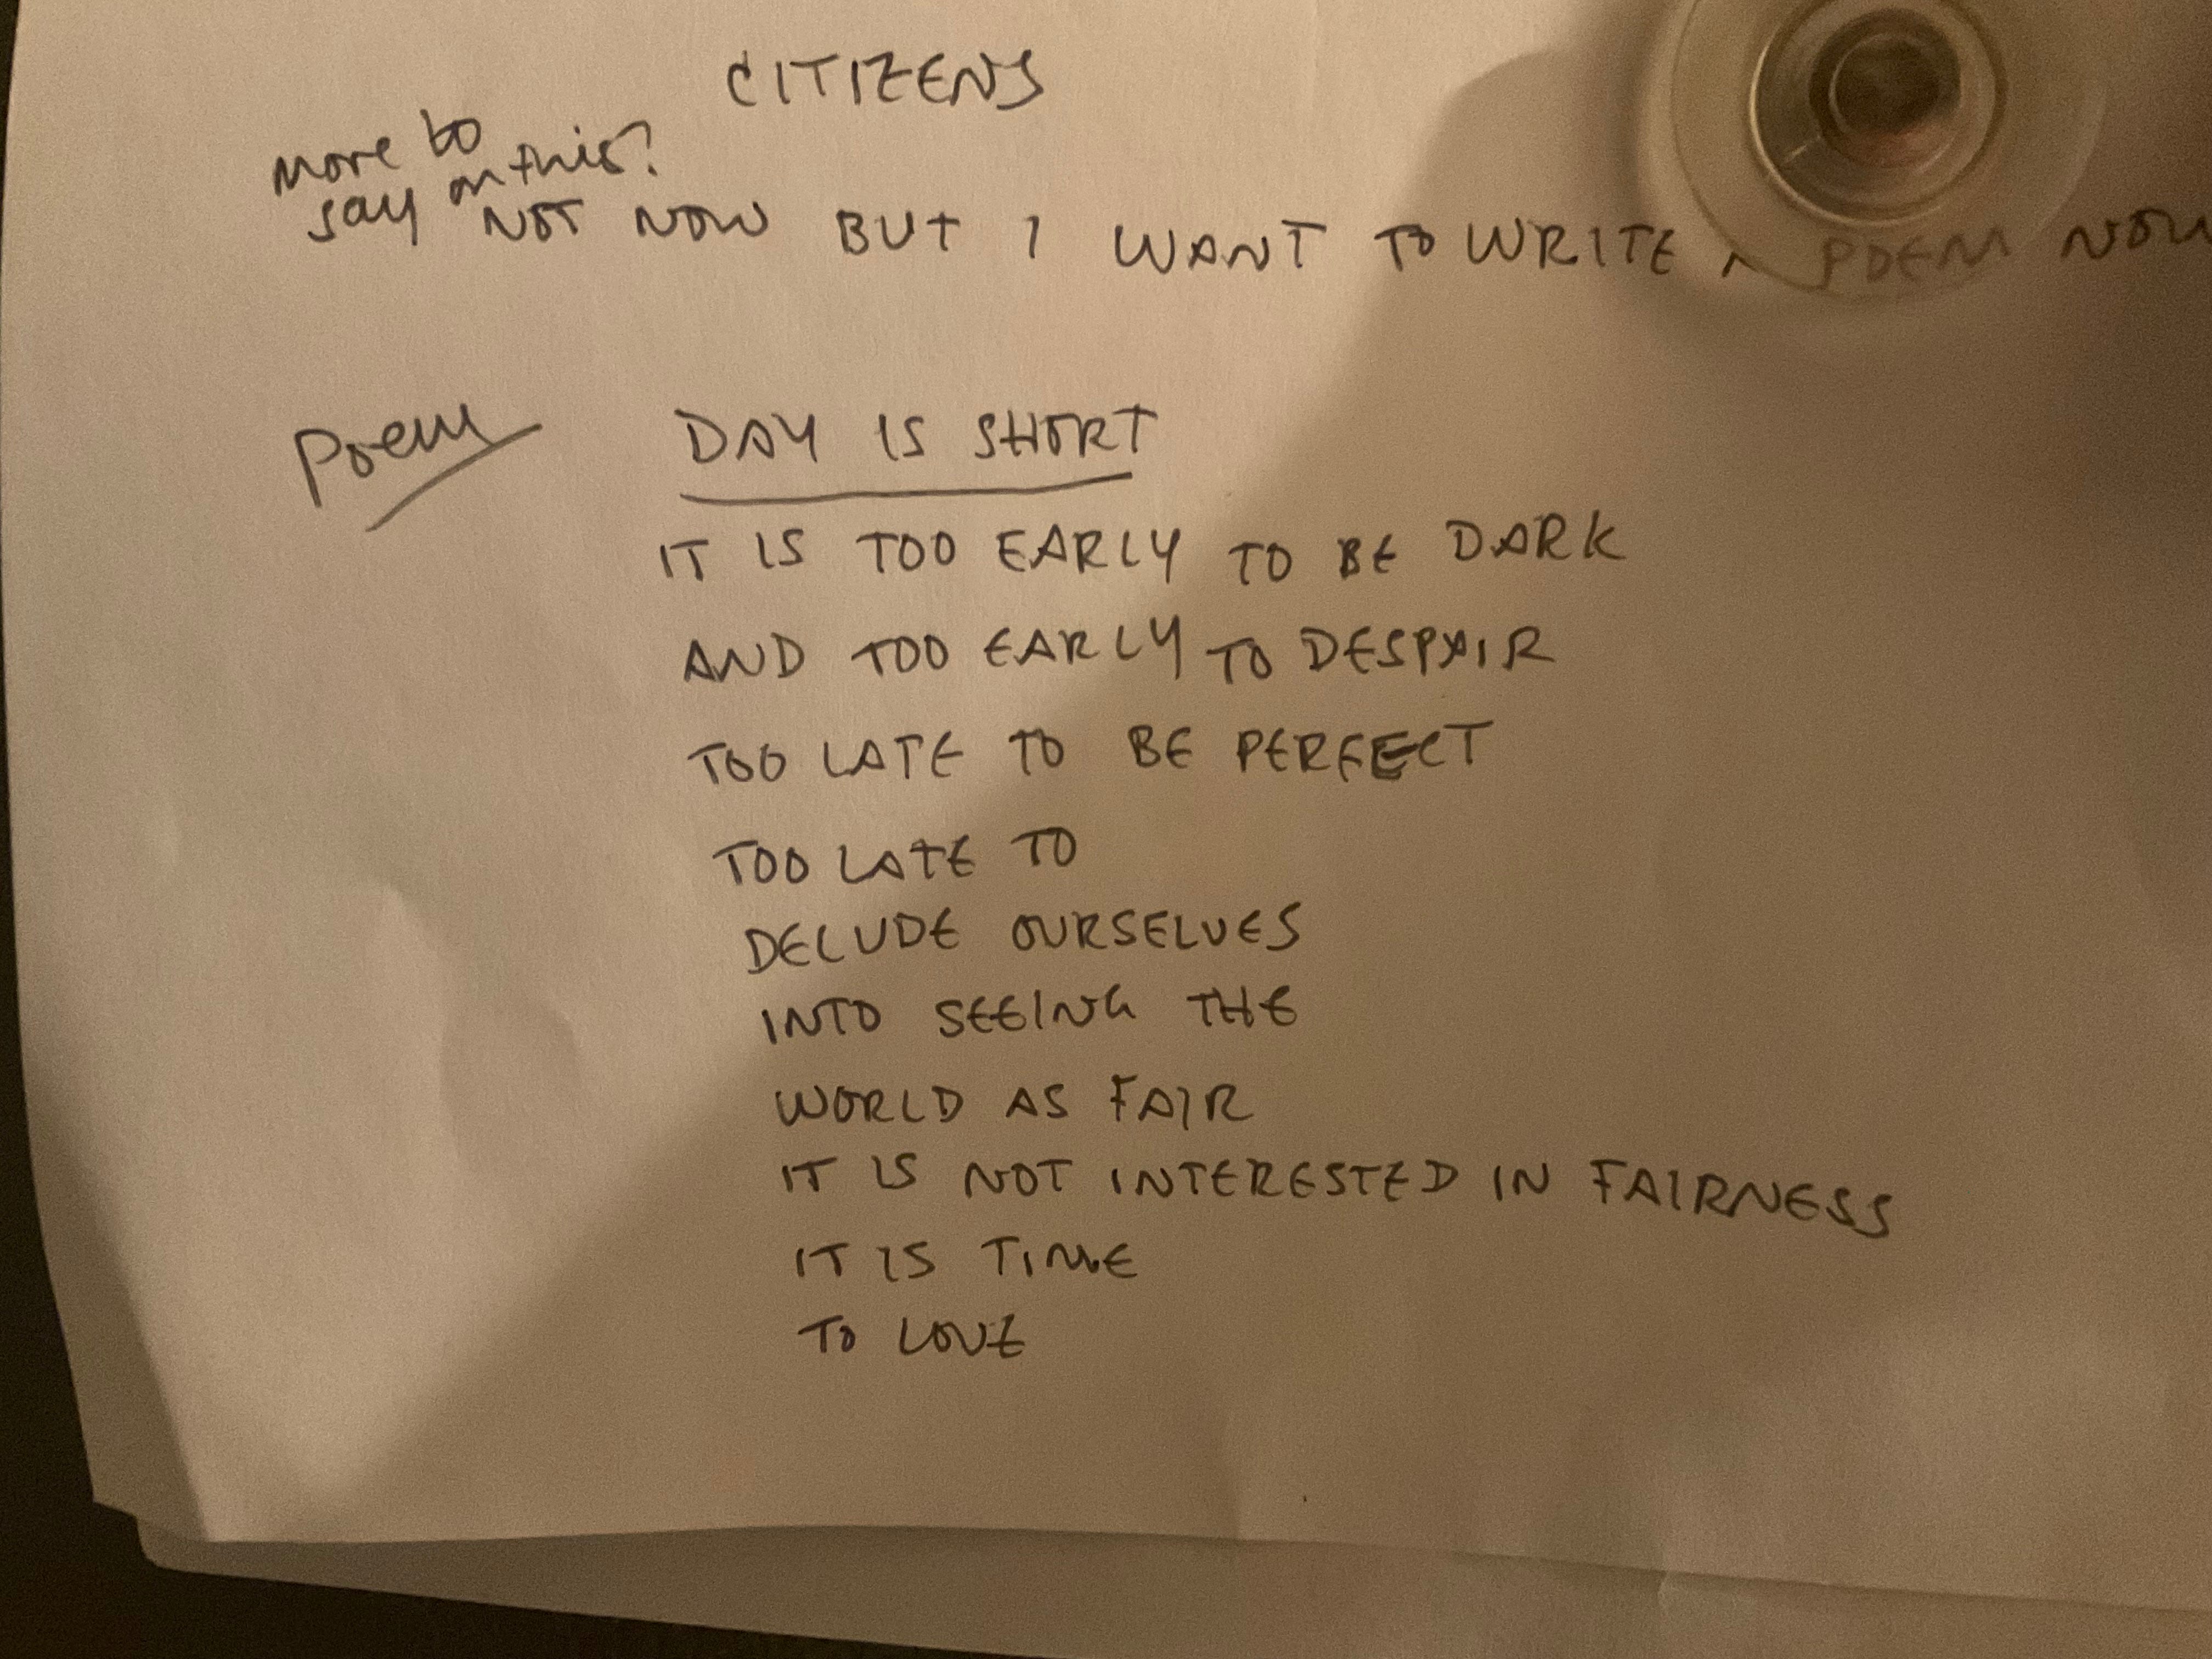 CITIZENS
more to
say on this?
NOT NOW BUT I WANT TO WRITE A POEM NOW
Poem
DAY IS SHORT
IT IS TOO EARLY TO BE DARK
AND TOO EARLY TO DESPAIR
TOO LATE TO BE PERFECT
TOO LATE TO
DELUDE OURSELVES
INTO SEEING THE
WORLD AS FAIR
IT IS NOT INTERESTED IN FAIRNESS
IT IS TIME
TO LOVE